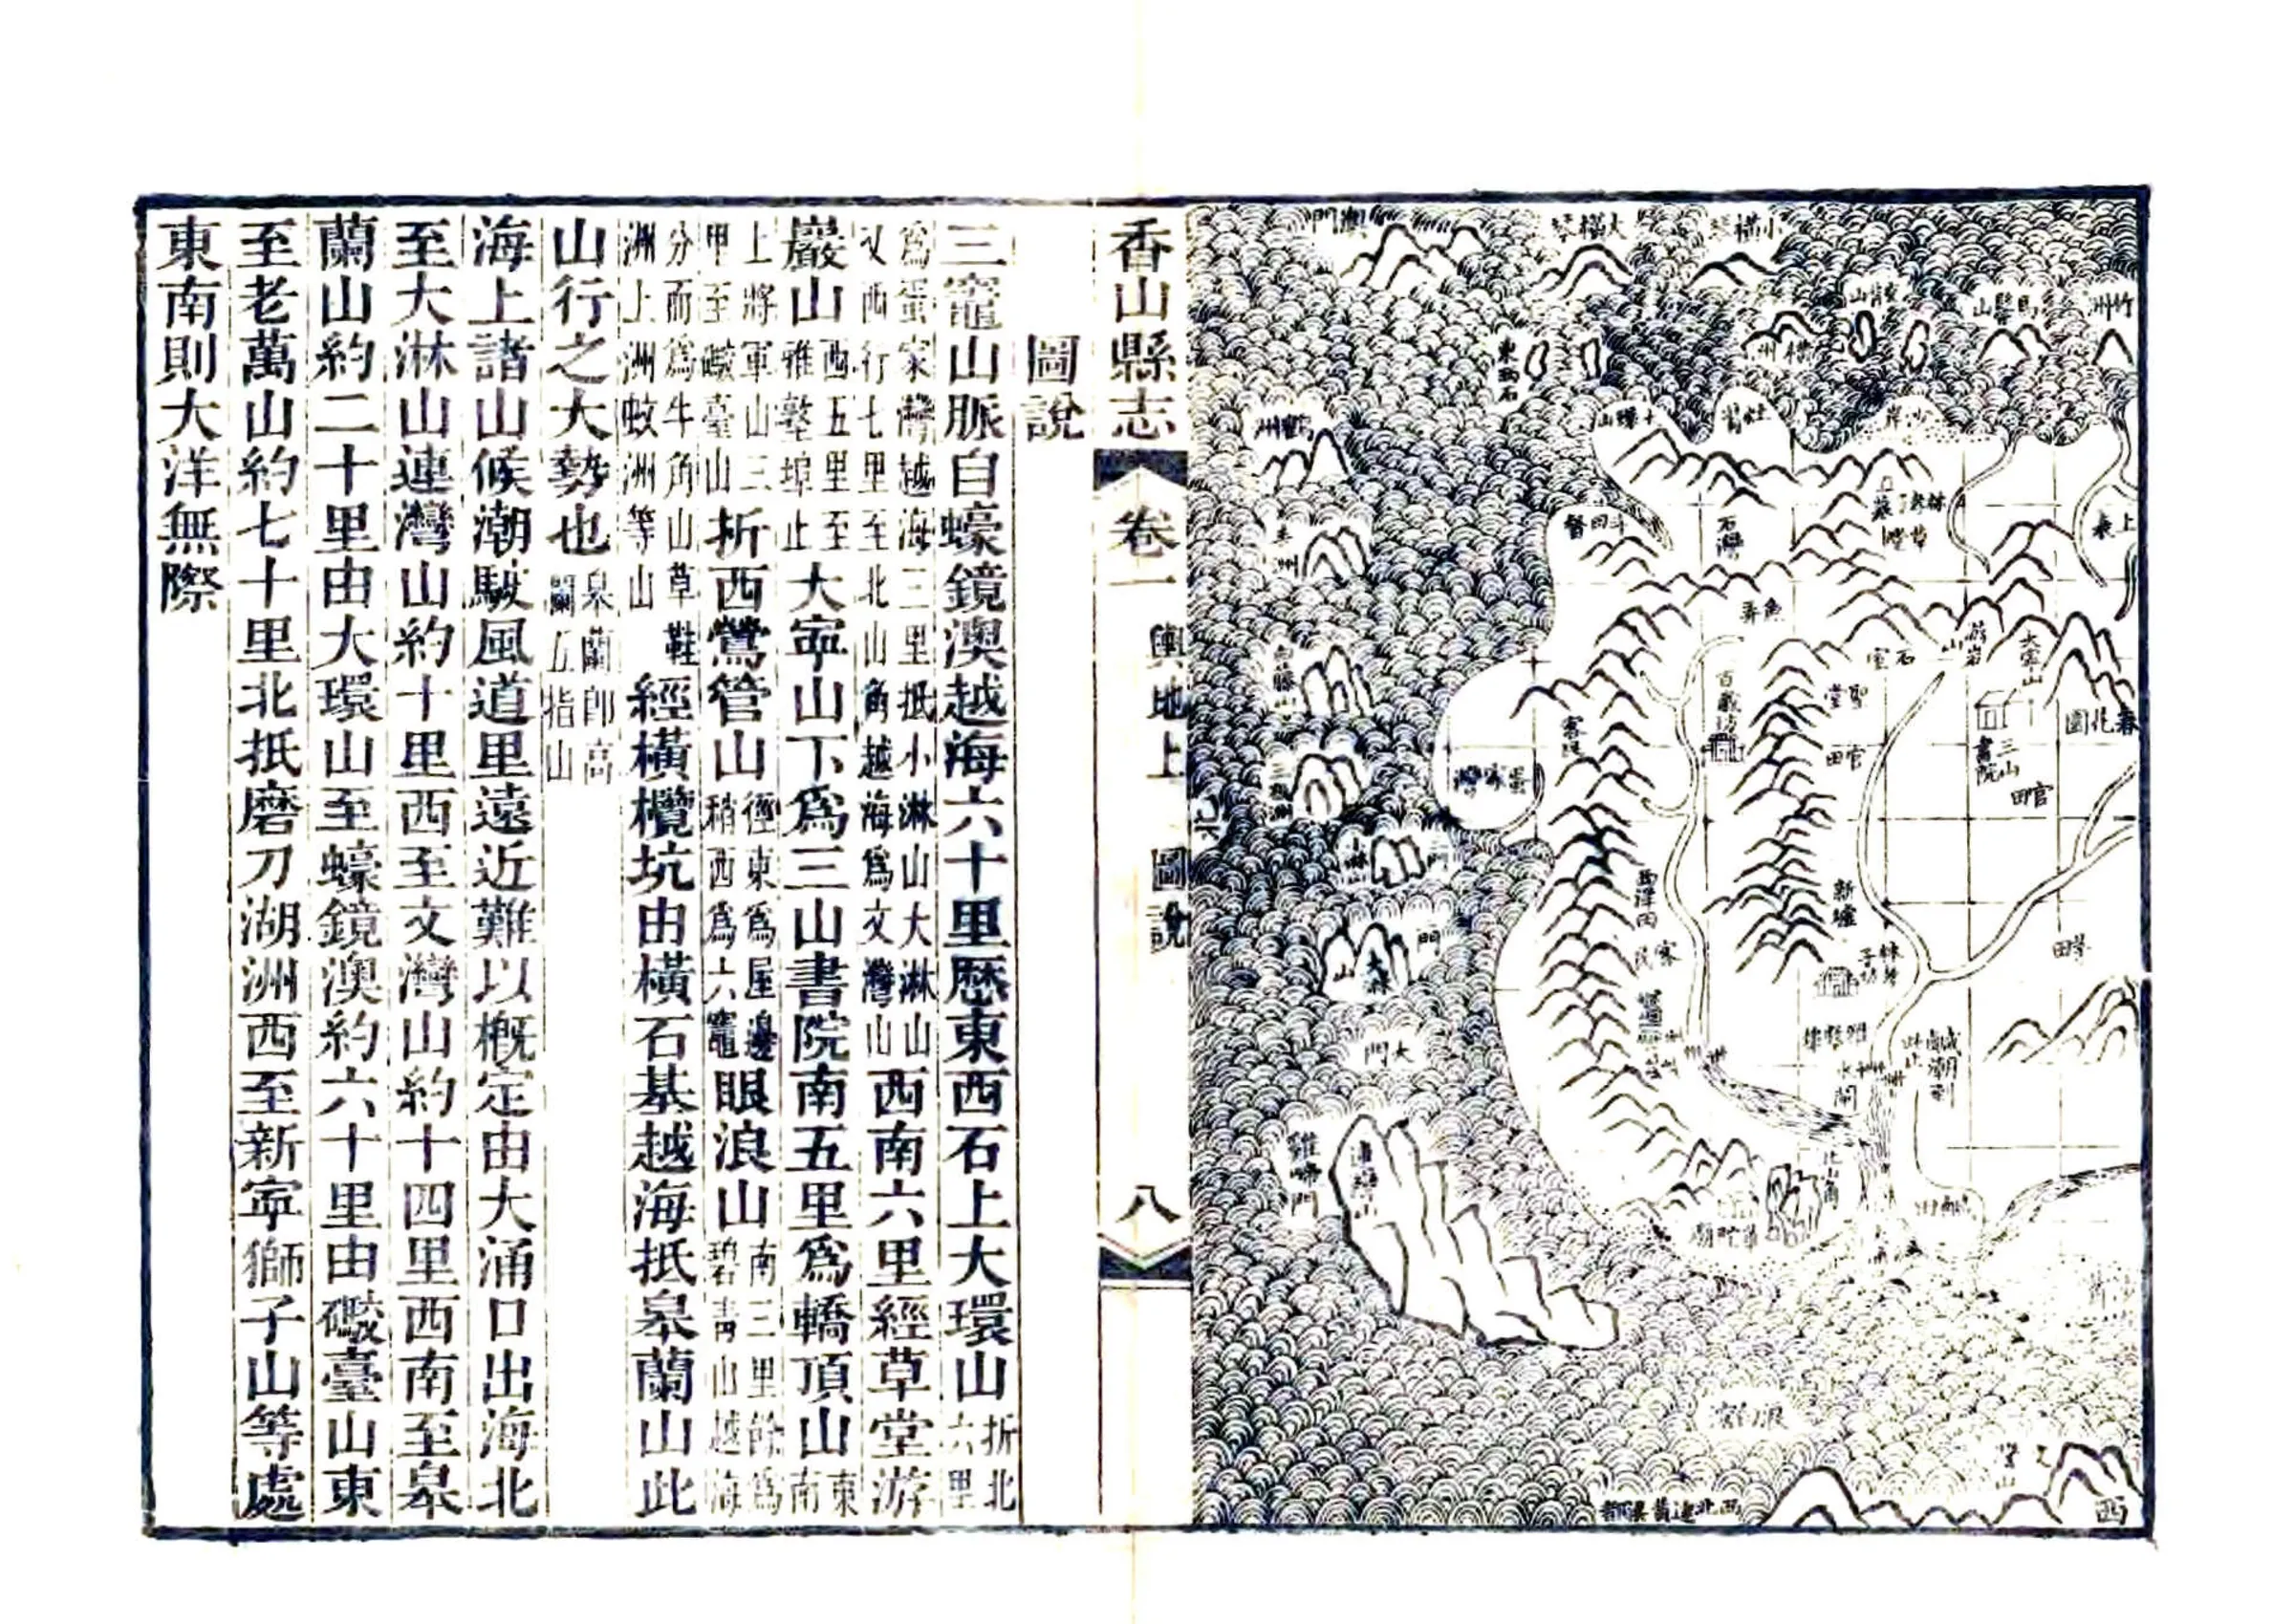 澳門
大橫琴
小橫琴
馬騮山
竹洲
橫洲
東西石
鶴洲
沙岸
石灣
上表
魚弄
石室
大寧山
春花園
聖堂
官田
三山書院
官田
白藤山
三板洲
蛋家灣
小淋山
門
大淋山
門
大門
新壚
客民
水閘
北山角
雞啼門
浪
西
西北達黃梁都
香山縣志
卷一
輿地上
圖說
八
圖說
三竈山脈自蠔鏡澳越海六十里歷東西石上大環山折北六里
爲蛋家灣越海三里抵小淋山大淋山
又西行七里至北山角越海爲文灣山西南六里經草堂游
巖山西五里至雅墪埠止大寧山下爲三山書院南五里爲轎頂山東南
上將軍山三甲至礮臺山折西鶯管山徑東爲屋邊稍西爲六竈眼浪山南三里餘爲碧靑山越海
分而爲牛角山草鞋洲上洲蚊洲等山經橫欖坑由橫石基越海抵皋蘭山此
山行之大勢也皋蘭卽高闌五指山
海上諸山候潮駛風道里遠近難以概定由大涌口出海北
至大淋山連灣山約十里西至文灣山約十四里西南至皋
蘭山約二十里由大環山至蠔鏡澳約六十里由礮臺山東
至老萬山約七十里北抵磨刀湖洲西至新寧獅子山等處
東南則大洋無際